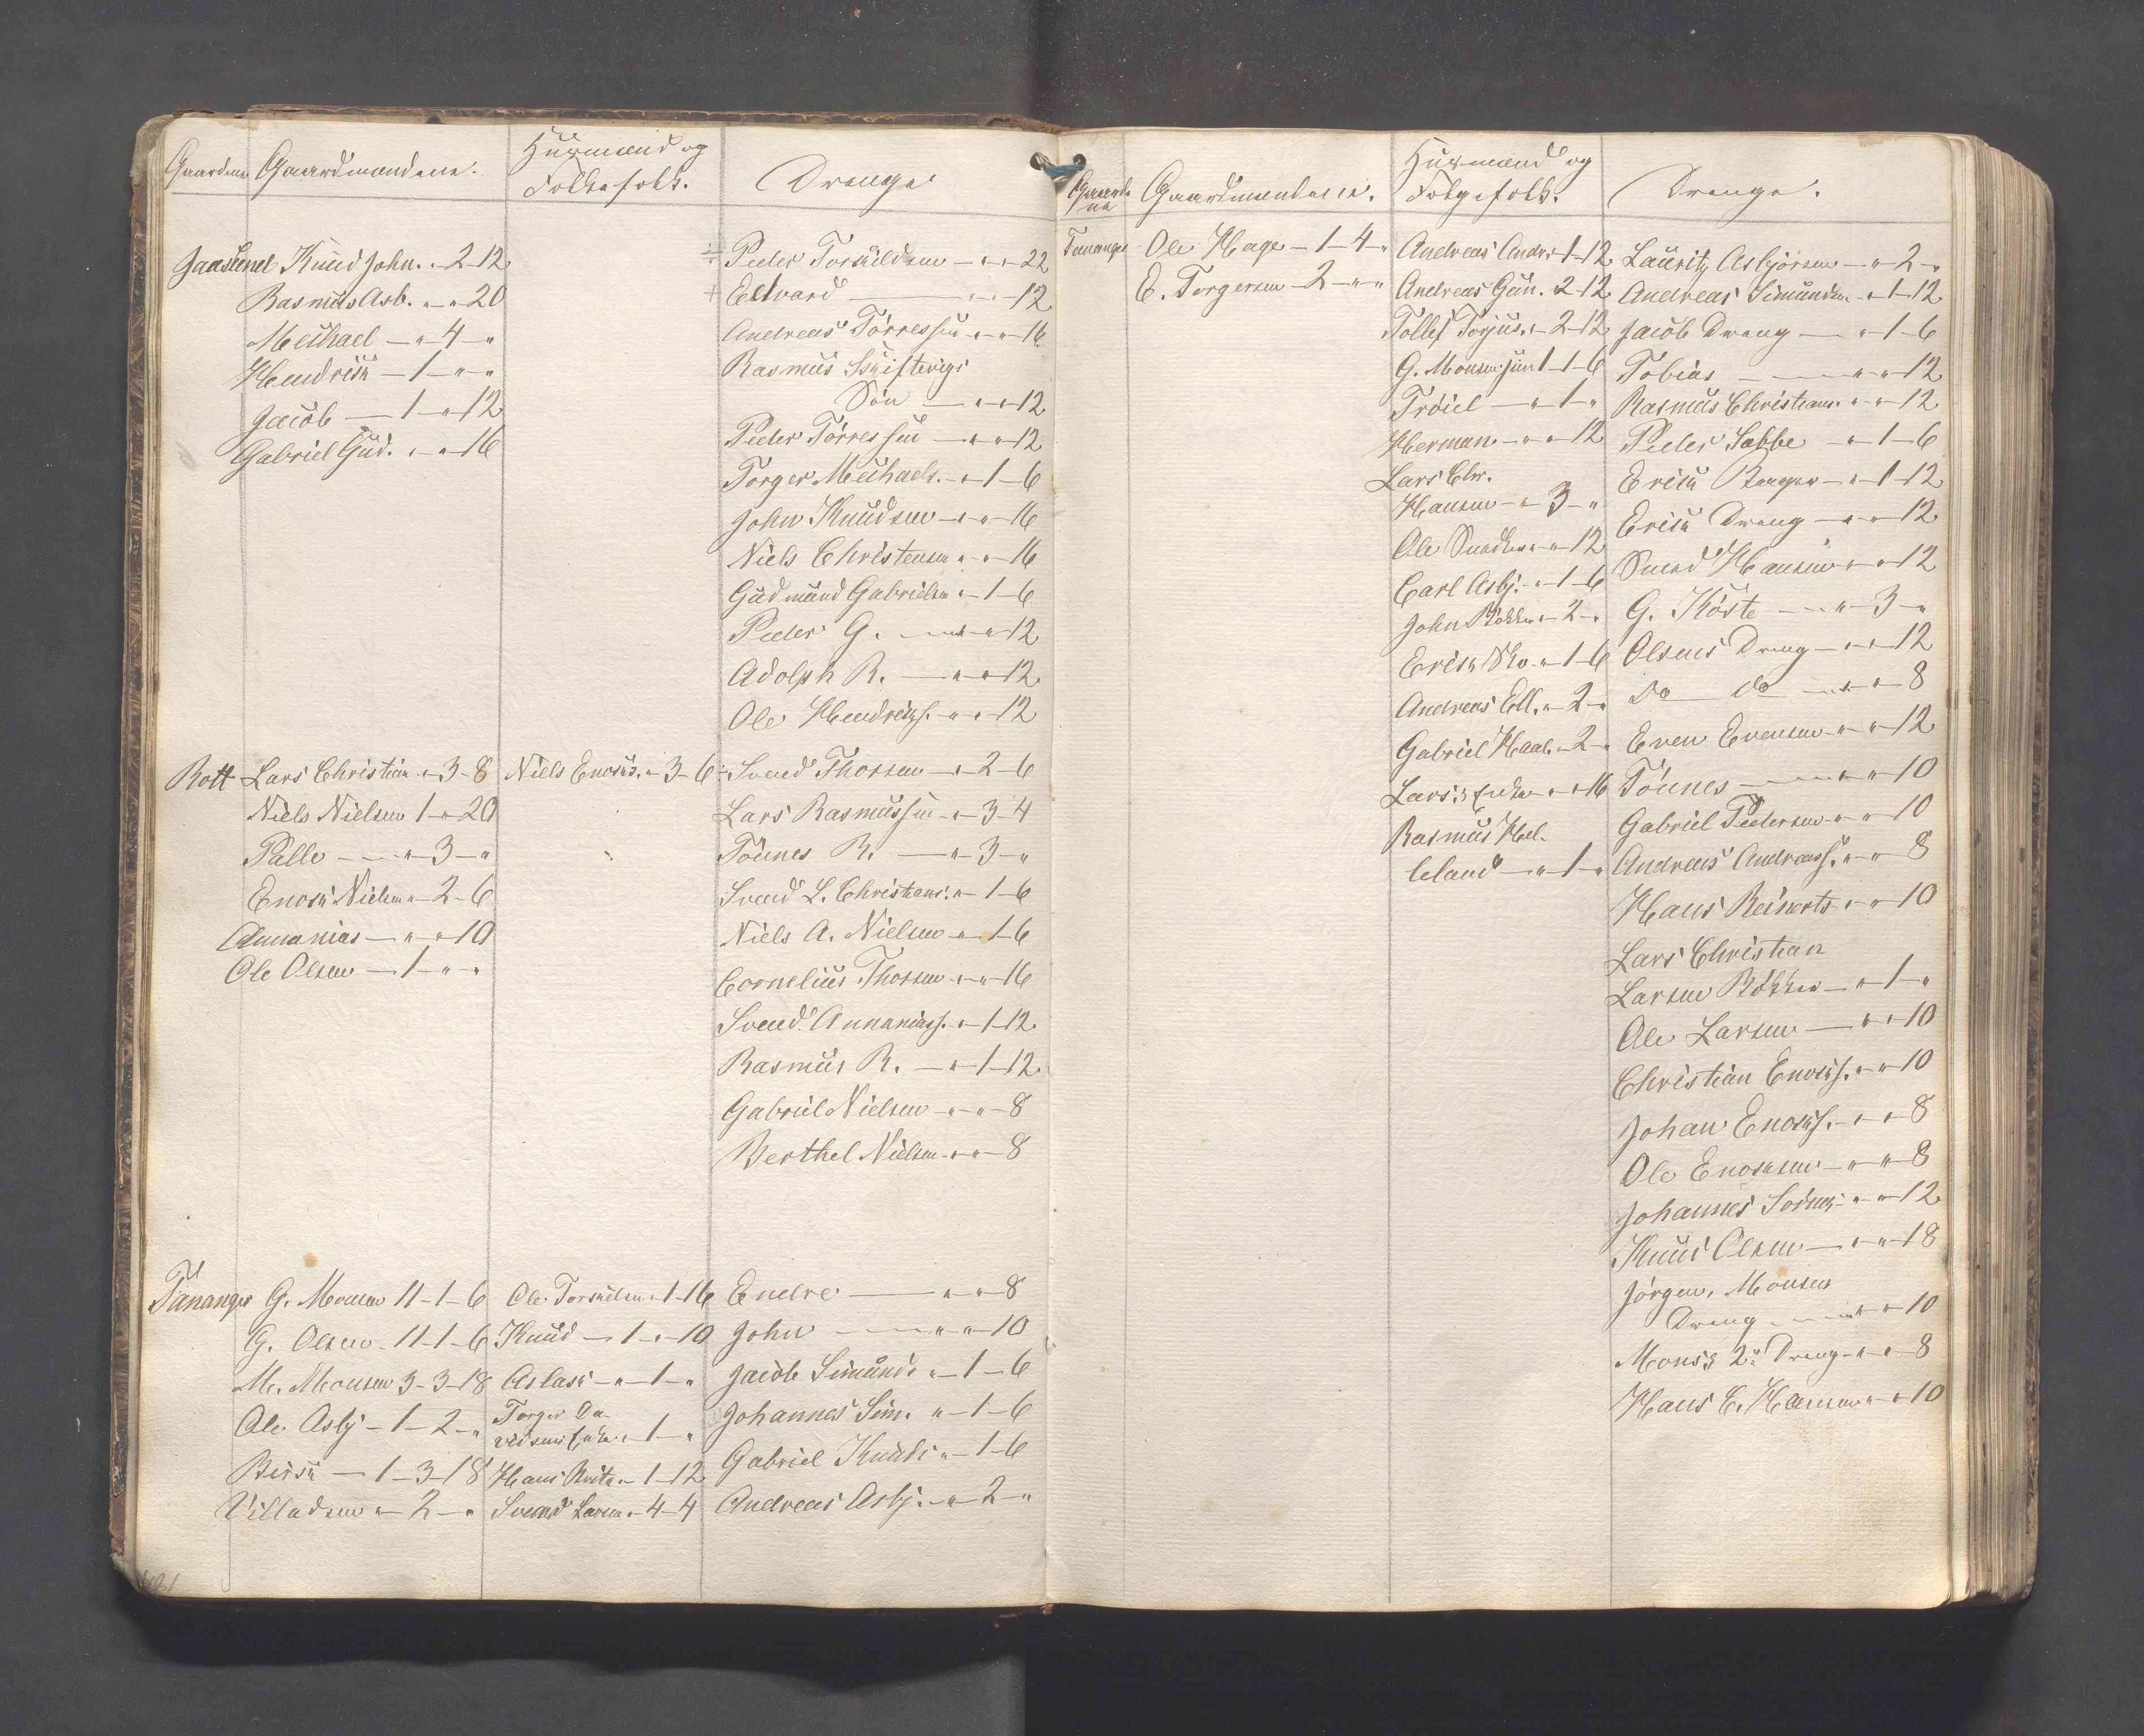 Gaardene Gaardmændene. Huusmænd og Drenge
Folkefolk.
Jaasund Knud John. " 2 - 12
Rasmus Asb. " - " 20
Michael - " - 4 - "
Hendrich - 1 - " - "
Jacob - 1 - " 12
Gabriel Gud. " - " 16
Peder Torkildsen - " - " - 22
Edvard - " - " - 12
Andreas Tørressen " - " - 16
Rasmus
Søn - " - " 12
Peder Tørressen - " - " 12
Torger Michaels. - " - 1 - 6
John Knudsen - " - " 16
Niels Christensen " - " 16
Gudmund Gabrielsen " - 1 - 6
Peder G. - " - " 12
Adolph R. - " - " 12
Ole Hendrichs. " - " 12
Rott Lars Christian " - 3 - 8 Niels Enochs. " - 3 - 6 Svend Thorsen - " 2 - 6
Niels Nielsen 1 - " 20
Palle - " - 3 - "
Enoch Nielsen " - 2 - 6
Annanias - " - " 10
Ole Olsen - 1 - " - "
Lars Rasmussen - " - 3 - 4
Tönnes R. - " 3 - "
Svend L. Christians. " - 1 - 6
Niels A. Nielsen " - 1 - 6
Cornelius Thorsen - " - " 16
Svend Annaniass. " - 1 - 12
Rasmus R. - " - 1 - 12
Gabriel Nielsen - " - " - 8
Berthel Nielsen - " - " - 8
Tananger G. Monsen 11 - 1 - 6 Ole Torkildsen " 1 - 16 Endre - " - " 8
G. Olsen - 11 - 1 - 6 Knud - 1 - " - 10 John - " - " - 10
M. Monsen 3 - 3 - 18 Aslach - " - 1 - " Jacob Simunds " - 1 - 6
Ole Asbj - 1 - 2 - " Torger Da- Johannes Sim. " - 1 - 6
vidsens Enke " - 1 - "
Berch - 1 - 3 - 18 Hans - 1 - 12 Gabriel Knuds " - 1 - 6
Villadsen " - 2 - " Svend Larsen " - 4 - 4 Andreas Asbj. - " - 2 - "
Gaardene Gaardmændene. Huusmænd og Drenge.
Følgefolk.
Tananger Ole Hage - 1 - 4 - "
E. Torgersen - 2 - " - "
Andreas Andr. 1 - 12
Andreas Gun. 2 - 12
Tollef Torjus. " - 2 - 12
G. Monsen jun 1 - 1 - 6
Tröiel - " 1 - "
Herman - " - " 12
Lars Chr.
Hansen - " - 3 - "
Ole " - " 12
Carl Asbj. - " - 1 - 6
John " - 2 - "
Erich " - 1 - 6
Andreas Ell. " - 2 - "
Gabriel Haal. " - 2 - "
Lars's Enke - " - " 16
Rasmus Hel-
leland - " - 1 - "
Lauritz Asbjörnsen - " - 2 - "
Andreas Simundsen - " 1 - 12
Jacob Dreng - " 1 - 6
Tobias - " - " 12
Rasmus Christians. " - " - 12
Peder Sabbe - " 1 - 6
Erich - " 1 - 12
Erich Dreng - " - " 12
Svend Hansen " - " 12
G. Köste - " - 3 - "
Olsens Dreng - " - " 12
Do - do - " - " - 8
Even Evensen - " - " 12
Tönnes - " - " 10
Gabriel Pedersen - " - " 10
Andreas Andreass. " - " 8
Hans Reinerts - " - " 10
Lars Christian
Larsen - " - 1 - "
Ole Larsen - " - " 10
Christian Enochs. " - " 10
Johan Enochs. - " - " 8
Ole Enochsen - " - " 8
Johannes " - " 12
Knud Olsen - " - " 18
Jörgen, Monsens
Dreng - " - " 10
Mons's 2n Dreng - " - " - 8
Hans C. Hansen " - " 10